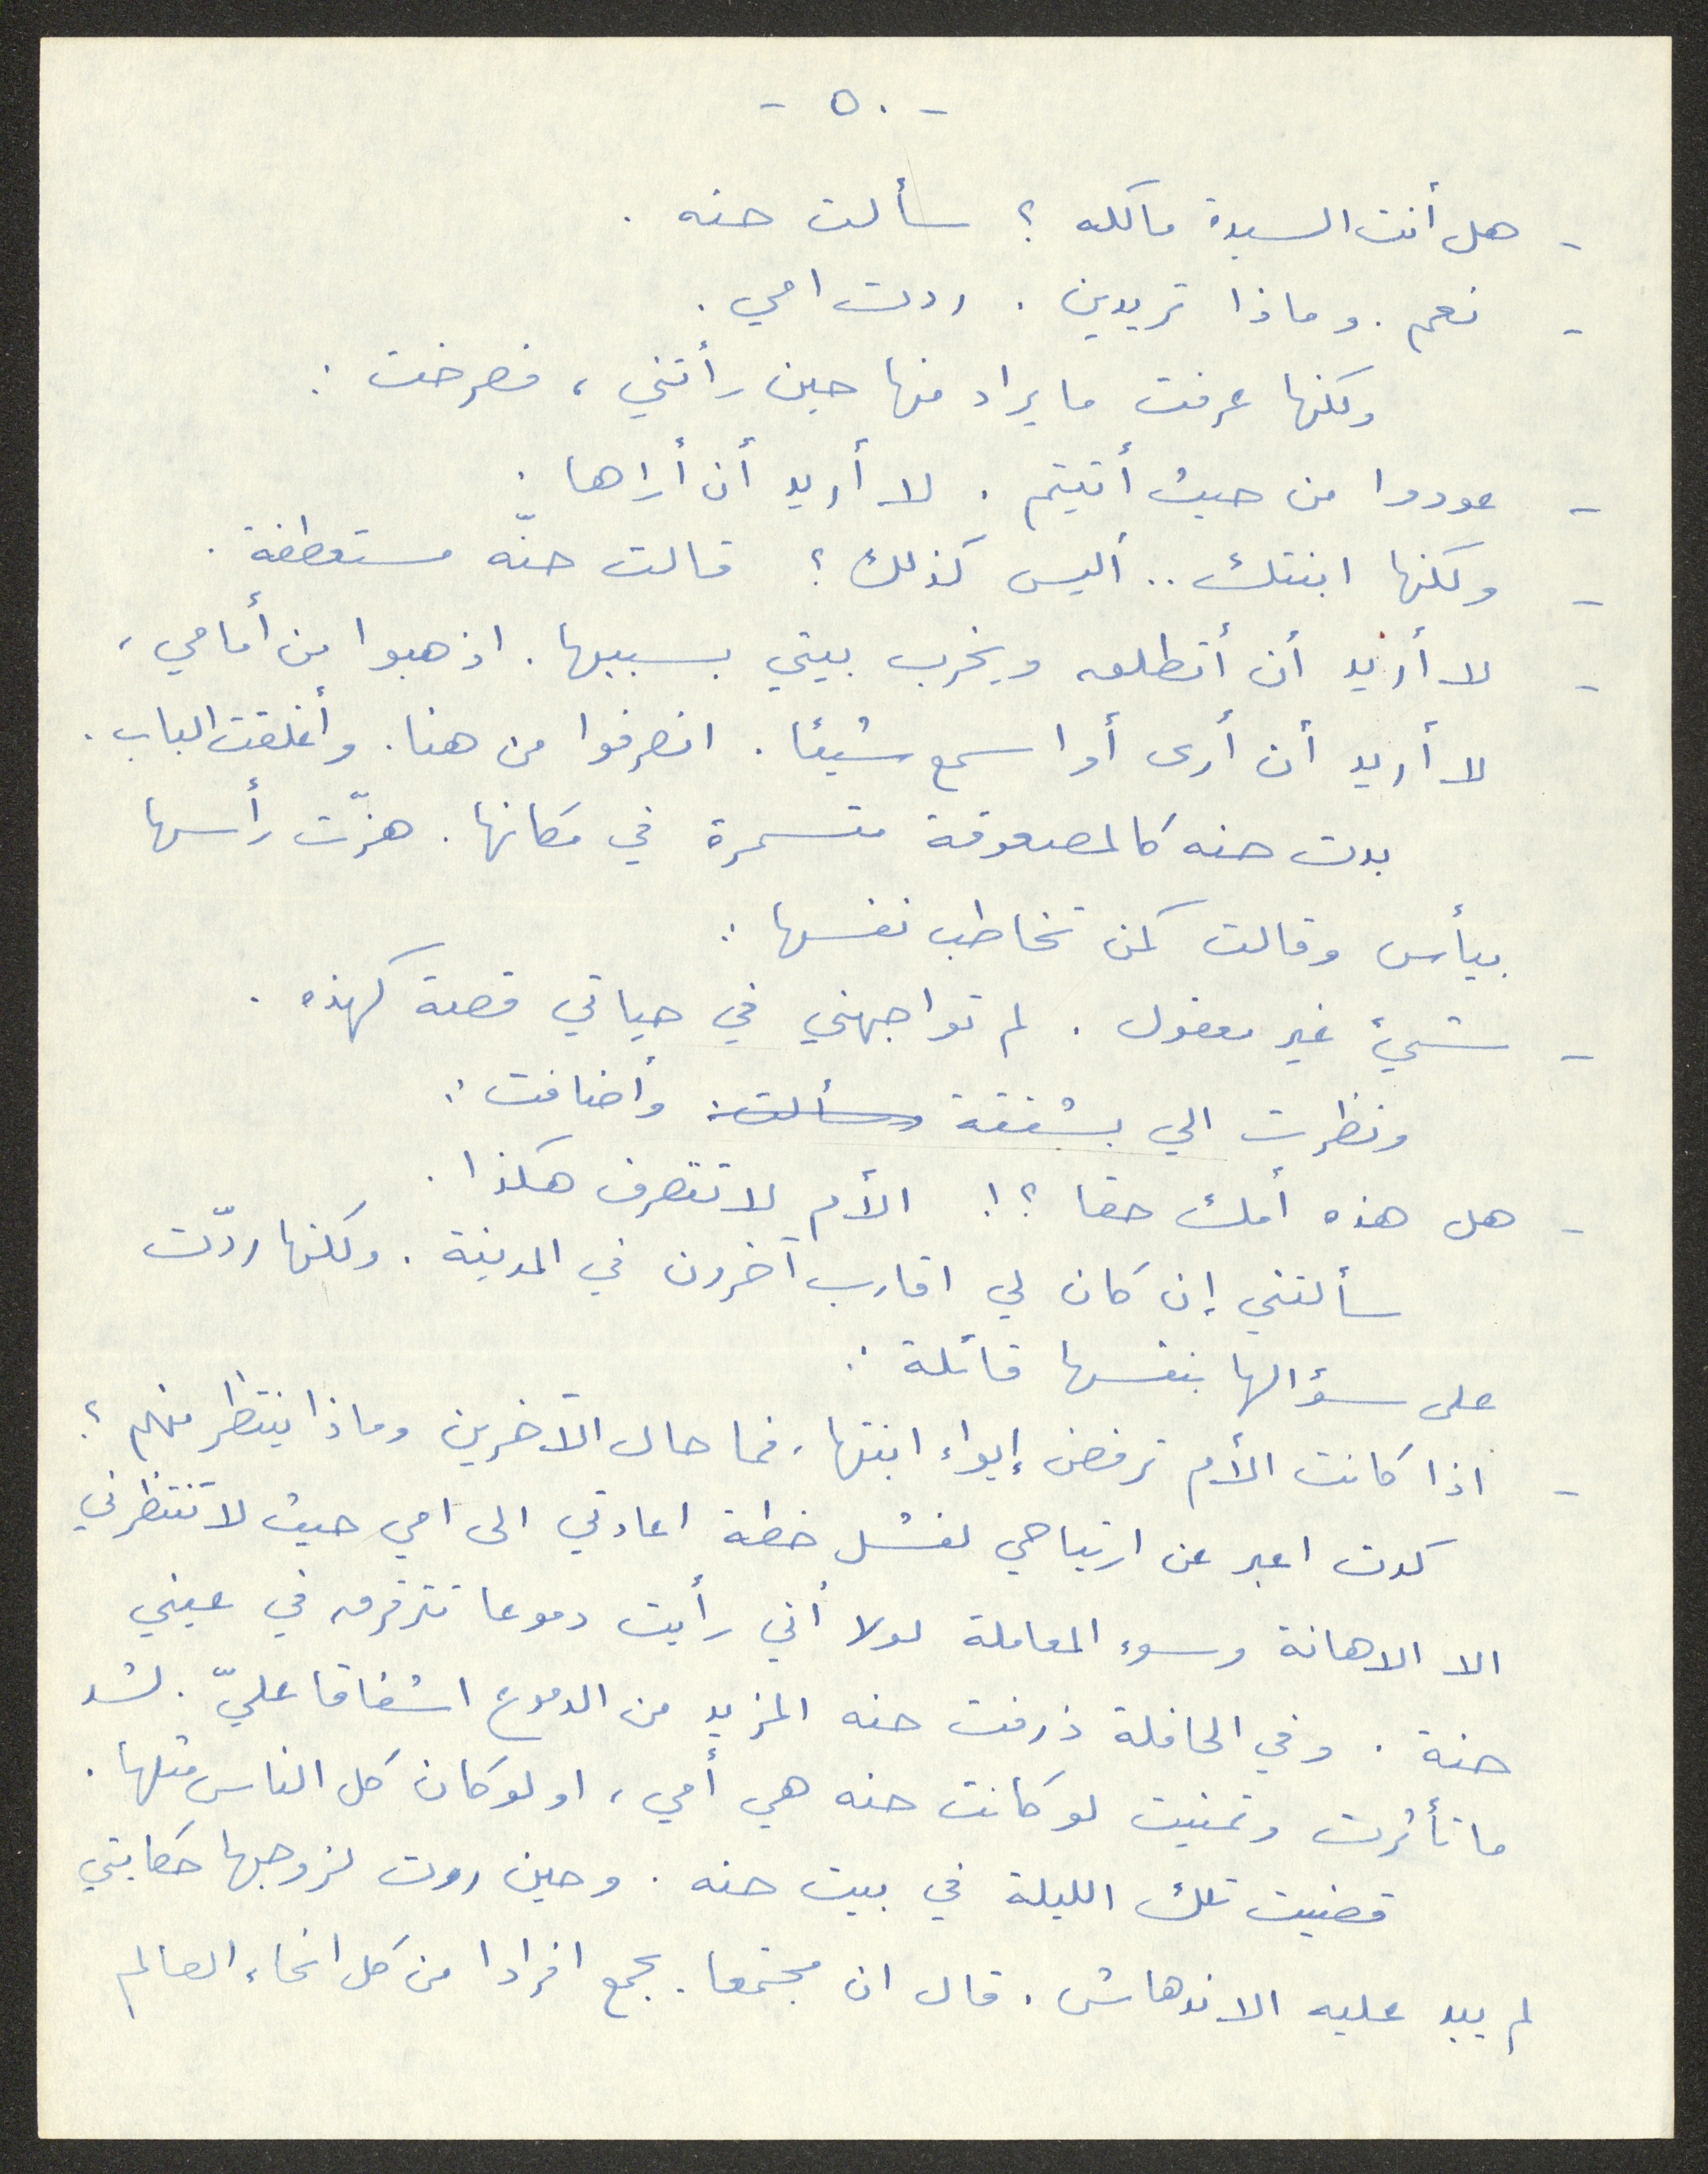 - ٥٠ -
- هل أنت السيدة مالكه ؟ سألت حنه .
- نعم . وماذا تريدين . ردت امي .
ولكنها عرفت ما يراد منها حين رأتني ، فصرخت :
- عودوا من حيث أتيتم . لا أريد أن أراها .
- ولكنها ابنتك .. أليس كذلك ؟ قالت حنّه مستعطفة .
- لا أريد أن أتطلق ويخرب بيتي بسببها . اذهبوا من أمامي ،
لا أريد أن أرى أو اسمع شيئا . انصرفوا من هنا . وأغلقت الباب .
بدت حنه كالمصعوقة متسمرة في مكانها . هزّت رأسها
بيأس وقالت كمن تخاطب نفسها :
- شيئ غير معقول . لم تواجهني في حياتي قصة كهذه .
ونظرت الي بشفقة وسألت : وأضافت :
- هل هذه أمك حقا ؟! الأم لا تتصرف هكذا .
سألتني إن كان لي اقارب آخرون في المدينة . ولكنها ردّت
على سؤالها بنفسها قائلة :
- اذا كانت الأم ترفض إيواء ابنتها ، فما حال الآخرين وماذا ينتظر منهم ؟
كدت اعبر عن ارتياحي لفشل خطة اعادتي الى امي حيث لا تنتظرني
الا الاهانة وسوء المعاملة لولا أني رأيت دموعا تترقرق في عيني
حنة . وفي الحافلة ذرفت حنه المزيد من الدموع اشفاقا عليّ . لشد
ما تأثرت وتمنيت لو كانت حنه هي أمي ، او لو كان كل الناس مثلها .
قضيت تلك الليلة في بيت حنه . وحين روت لزوجها حكايتي
لم يبد عليه الاندهاش . قال ان مجتمعا . يجمع افرادا من كل انحاء العالم